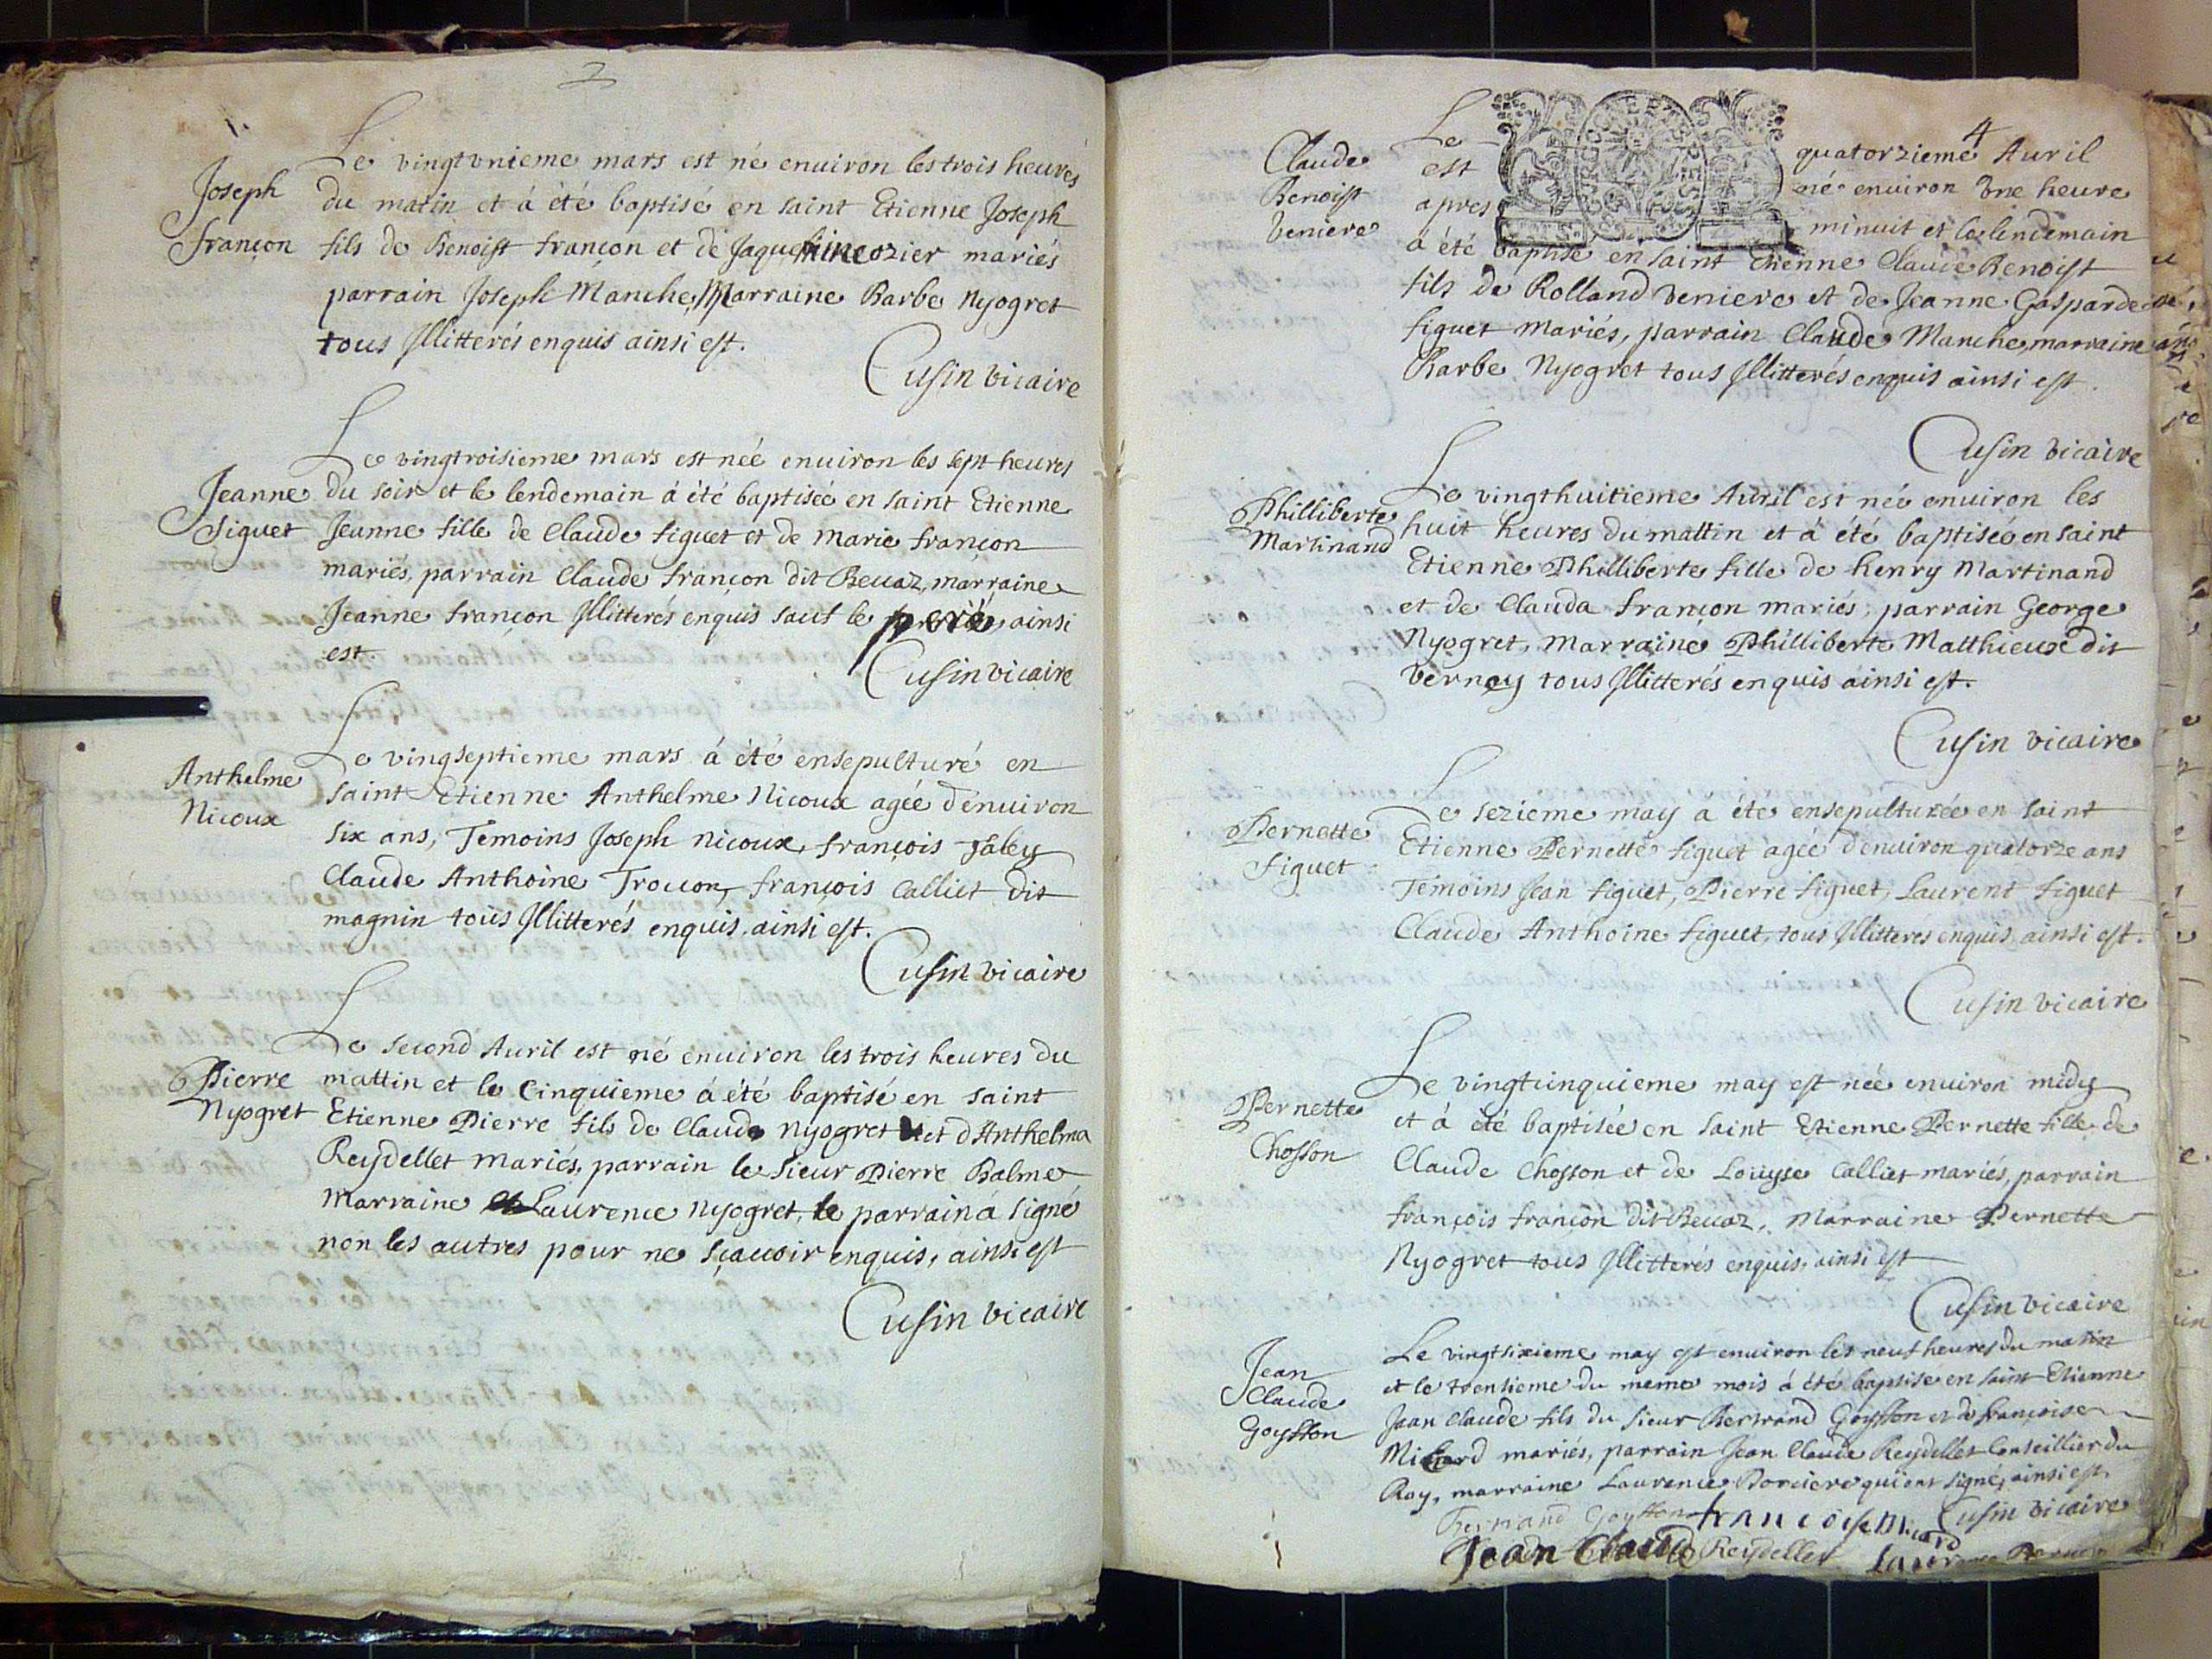 Joseph
françon
Le vingtvnieme mars est né enuiron les trois heures
du matin et á été baptisé en saint Etienne Joseph
fils de Benoist françon et de Jaquemine ozier mariés
parrain Joseph Manche, Marraine Barbe Nyogret
tous Illitterés enquis ainsi est.
Cusin vicaire
Jeanne
figuet
Le vingtroisieme mars est née enuiron les sept heures
du soir et le lendemain á été baptisée en saint Etienne
Jeanne fille de Claude figuet et de marie françon
mariés, parrain Claude françon dit Beuaz, marraine
Jeanne françon Illitterés enquis sauf le pere ainsi
est.
Cusin vicaire
Anthelme
Nicoux
Le vingseptieme mars á été ensepulturé en
saint Etienne Anthelme Nicoux agée d'enuiron
six ans, Temoins Joseph Nicoux, françois Jabey
Claude Anthoine Trouon, françois Calliet dit
magnin tous Illitterés enquis, ainsi est.
Cusin vicaire
Pierre
Nyogret
Le second Auril est né enuiron les trois heures du
mattin et le Cinquieme á été baptisé en saint
Etienne Pierre fils de Claude Nyogret et d'Anthelma
Reydellet mariés, parrain le sieur Pierre Balme
Marraine Laurence Nyogret, le parrain á signé
non les autres pour ne sçauoir enquis, ainsi est
Cusin vicaire
4
Claude
Benoist
veniere
Le quatorzieme Auril
est né enuiron vne heure
apres minuit et le lendemain
á été baptisé en saint Etienne Claude Benoist
fils de Rolland veniere et de Jeanne Gasparde
figuet mariés, parrain Claude Manche, marraine
Barbe Nyogret tous Illitterés enquis ainsi est.
Cusin vicaire
Philliberte
Martinand
Le vingthuitieme Auril est née enuiron les
huit heures du mattin et á été baptisée en saint
Etienne Philliberte fille de henry Martinand
et de Clauda françon mariés; parrain George
Nyogret, Marraine Philliberte Matthieux dit
verney tous Illitterés enquis ainsi est.
Cusin vicaire
Pernette
figuet
Le sezieme may á été ensepulturée en saint
Etienne Pernette figuet agée d'enuiron quatorze ans
Temoins Jean figuet, Pierre figuet, Laurent figuet
Claude Anthoine figuet, tous Illitterés enquis ainsi est.
Cusin vicaire
Pernette
Chosson
Le vingtcinquieme may est née enuiron midy
et á été baptisée en saint Etienne Pernette fille de
Claude Chosson et de Louyse Calliet mariés, parrain
françois françon dit Beuaz, Marraine Pernette
Nyogret tous Illitterés enquis, ainsi est
Cusin vicaire
Jean
Claude
Goysson
Le vingtsixieme may est enuiron les neuf heures du matin
et le trentieme du meme mois á été baptise en saint Etienne
Jean Claude fils du sieur Bertrand Goysson et de françoise
Micard mariés, parrain Jean Claude Reydellet Conseillier du
Roy, marraine Laurence Borciere qui ont signé, ainsi est.
Cusin vicaire
Goysson francoise Micard
Jean Claude Reydellet Laurence